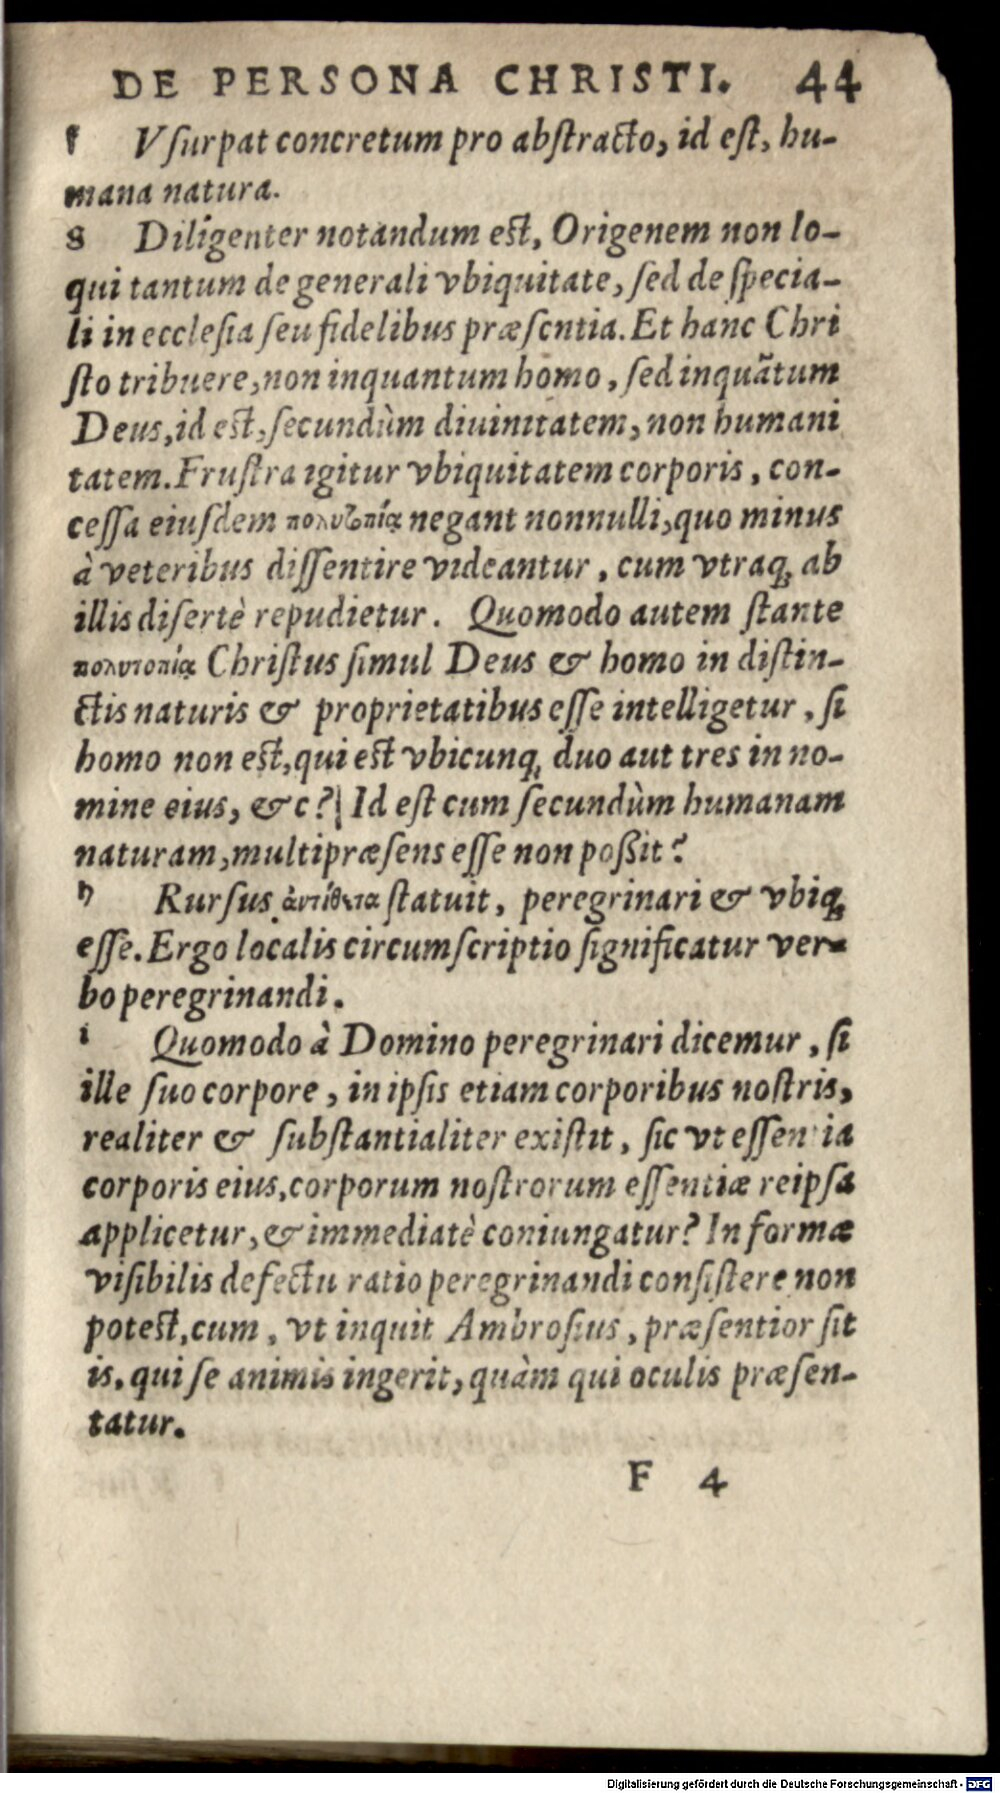 DE PERSONA CHRISTI. 44
f Vsurpat concretum pro abstracto, id est, hu-
mana natura.
g Diligenter notandum est, Origenem non lo-
qui tantum de generali vbiquitate, sed de specia-
li in ecclesia seu fidelibus præsentia. Et hanc Chri
sto tribuere, non inquantum homo, sed inquãtum
Deus, id est, secundùm diuinitatem, non humani
tatem. Frustra igitur vbiquitatem corporis, con-
cessa eiusdem πολυτοπίᾳ negant nonnulli, quo minus
à veteribus dissentire videantur, cum vtraq; ab
illis disertè repudietur. Quomodo autem stante
πολυτοπίᾳ Christus simul Deus & homo in distin-
ctis naturis & proprietatibus esse intelligetur, si
homo non est, qui est vbicunq; duo aut tres in no-
mine eius, &c? Id est cum secundùm humanam
naturam, multipræsens esse non poßit?
h Rursus ἀντίθετα statuit, peregrinari & vbiq;
esse. Ergo localis circumscriptio significatur ver-
bo peregrinandi.
i Quomodo à Domino peregrinari dicemur, si
ille suo corpore, in ipsis etiam corporibus nostris,
realiter & substantialiter existit, sic vt essentia
corporis eius, corporum nostrorum essentiæ reipsa
applicetur, & immediatè coniungatur? In formæ
visibilis defectu ratio peregrinandi consistere non
potest, cum, vt inquit Ambrosius, præsentior sit
is, qui se animis ingerit, quàm qui oculis præsen-
tatur.
F 4
Digitalisierung gefördert durch die Deutsche Forschungsgemeinschaft - DFG